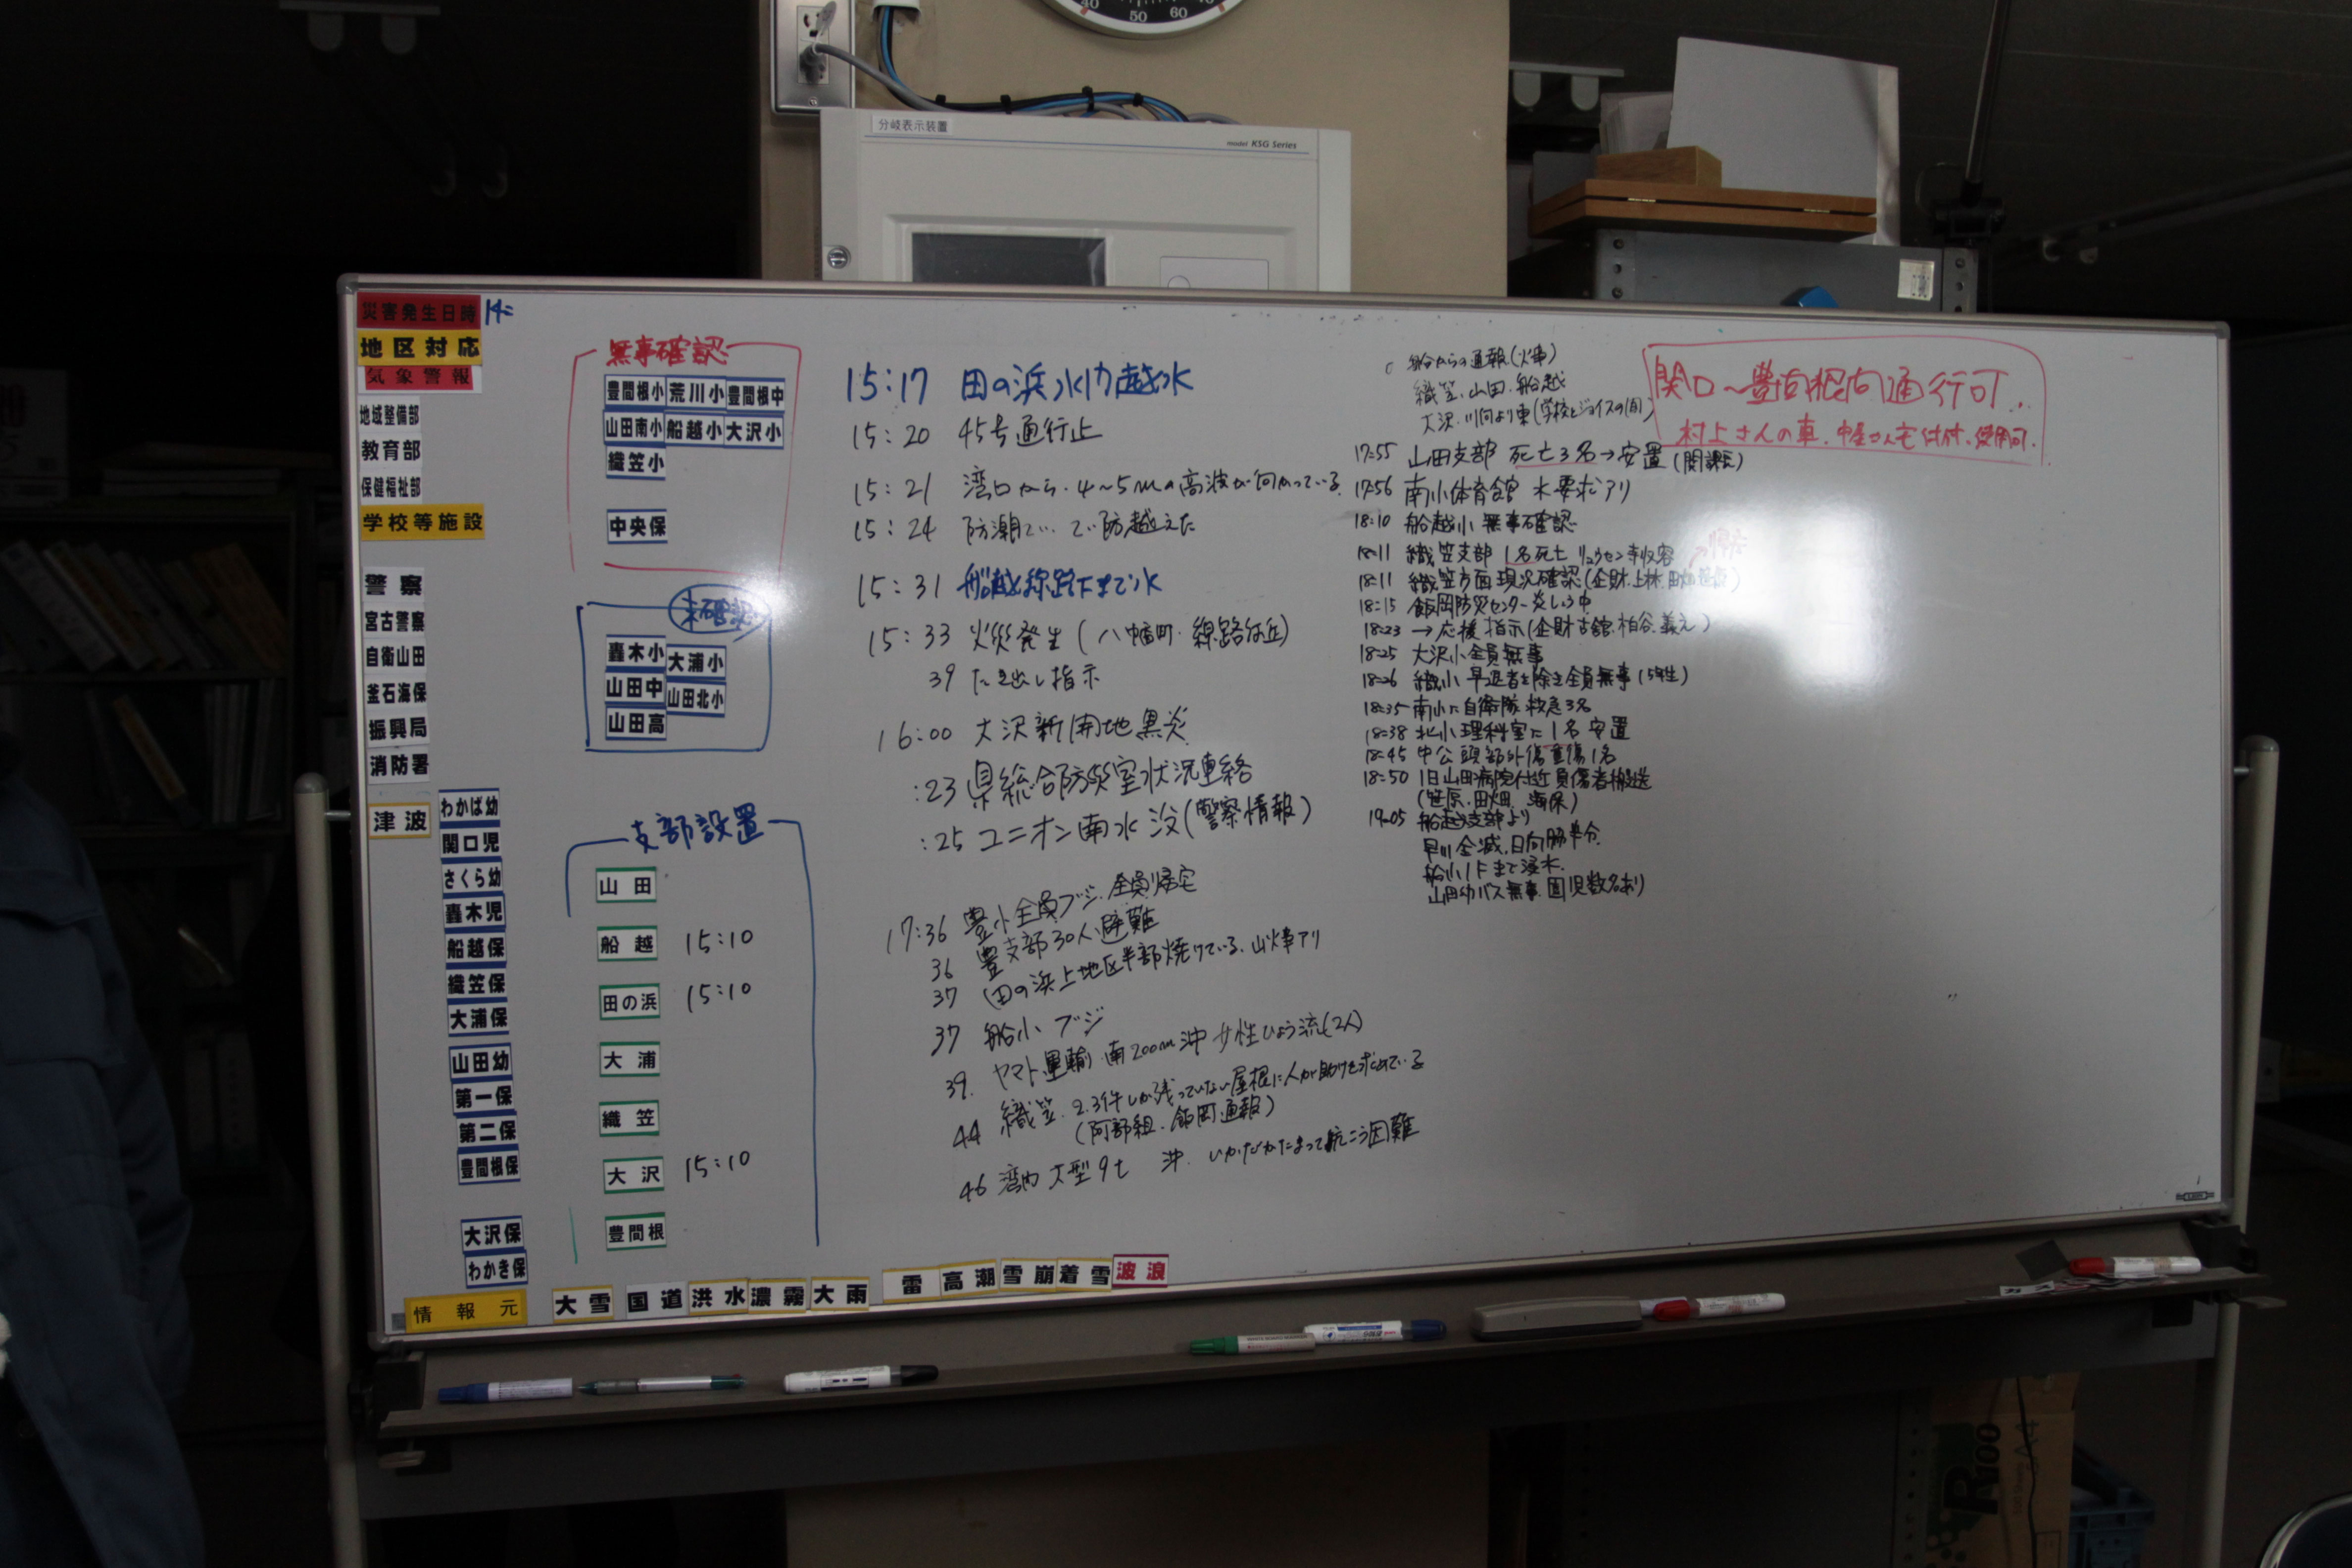 40 50 60
分岐表示装置
model KSG Series
災害発生日時 14:
地区対応
気象警報
地域整備部
教育部
保健福祉部
学校等施設
警察
宮古警察
自衛山田
釜石海保
振興局
消防署
津波
わかば幼
関口児
さくら幼
轟木児
船越保
織笠保
大浦保
山田幼
第一保
第二保
豊間根保
大沢保
わかき保
情報元
無事確認
豊間根小 荒川小 豊間根中
山田南小 船越小 大沢小
織笠小
中央保
未確認
轟木小 大浦小
山田中 山田北小
山田高
支部設置
山田
船越 15:10
田の浜 15:10
大浦
織笠
大沢 15:10
豊間根
大雪 国道 洪水 濃霧 大雨 雷 高潮 雪崩 着雪 波浪
15:17 田の浜 水力越水
15:20 45号通行止
15:21 湾口から 4~5mの高波が向かっている
15:24 防潮てい てい防越えた
15:31 船越線路下まで水
15:33 火災発生(八幡町 線路付近)
39 たき出し指示
16:00 大沢新開地黒炎
:23 県総合防災室状況連絡
:25 ユニオン南水没(警察情報)
17:36 豊小全員ブジ 全員帰宅
36 豊支部30人避難
37 田の浜上地区半部焼けている、山火事アリ
37 船小 ブジ
39. ヤマト運輸 南200m沖 女性ひょう流(2人)
44 織笠、2.3件しか残っていない屋根に人が助けを求めている
(阿部組、飯岡通報)
46 湾内 大型9t 沖、いかだかたまって航こう困難
船からの通報(火事)
織笠、山田、船越
大沢、川向より東(学校とジョイスの間)
17:55 山田支部 死亡3名→安置(関課長)
17:56 南小体育館 水要求アリ
18:10 船越小 無事確認
18:11 織笠支部 1名死亡 リュウセン寺収容
18:11 織笠方面現況確認(企財、上林、田畑
18:15 飯岡防災センター炎上中
18:23 →応援指示(企財古舘、柏谷、義元)
18:25 大沢小全員無事
18:26 織小 早退者を除き全員無事(5年生)
18:35 南小に自衛隊 救急3名
18:38 北小理科室に1名安置
18:45 中公 頭部外傷重傷1名
18:50 旧山田病院付近負傷者搬送
(笹原、田畑、海保)
19:05 船越支部より
早川全滅、日向脇半分、
船小1Fまで浸水、
山田幼バス無事、園児数名あり)
関口~豊間根向通行可、
村上さんの車、
使用可、